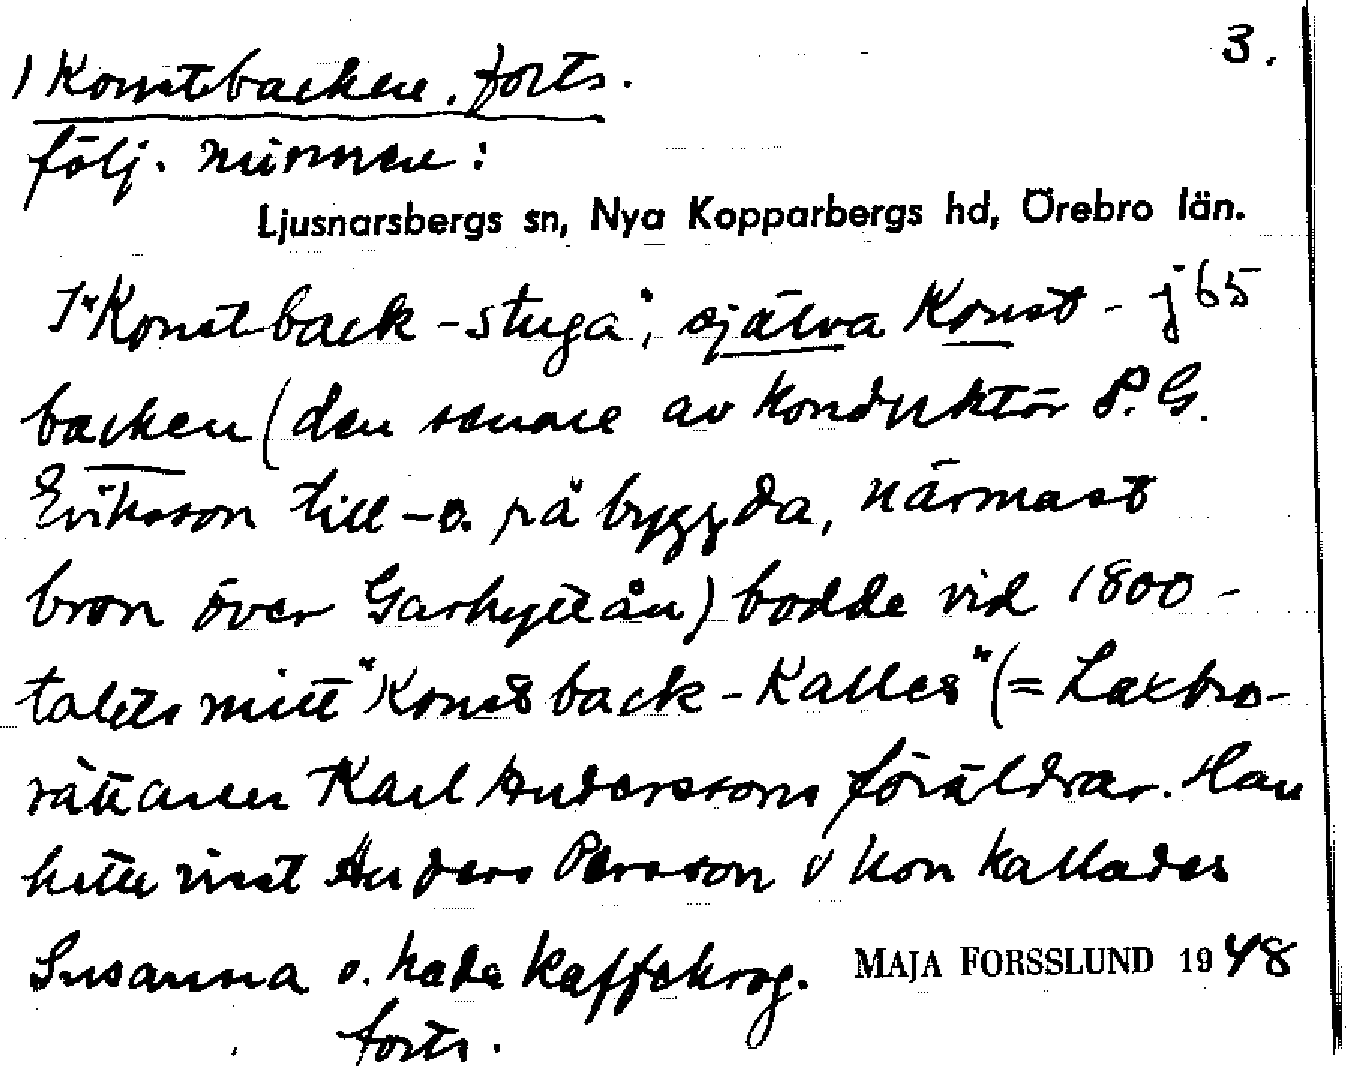 3.
) Konstbacken, forts.
följ. minnen:
Ljusnarsbergs sn, Nya Kopparbergs hd, Örebro län.
I "Konstback-stuga", själva Konst- j 65
backen (den senare av konduktör P. G.
Eriksson till- o. påbyggda, närmast
bron över Garhytteån) bodde vid 1800-
talets mitt "Konstback-Kalles" (= Laxbro-
rättaren Karl Anderssons föräldrar. Han
hette visst Anders Persson o hon kallades
Susanna o. hade kaffekrog. MAJA FORSSLUND 1948
forts.